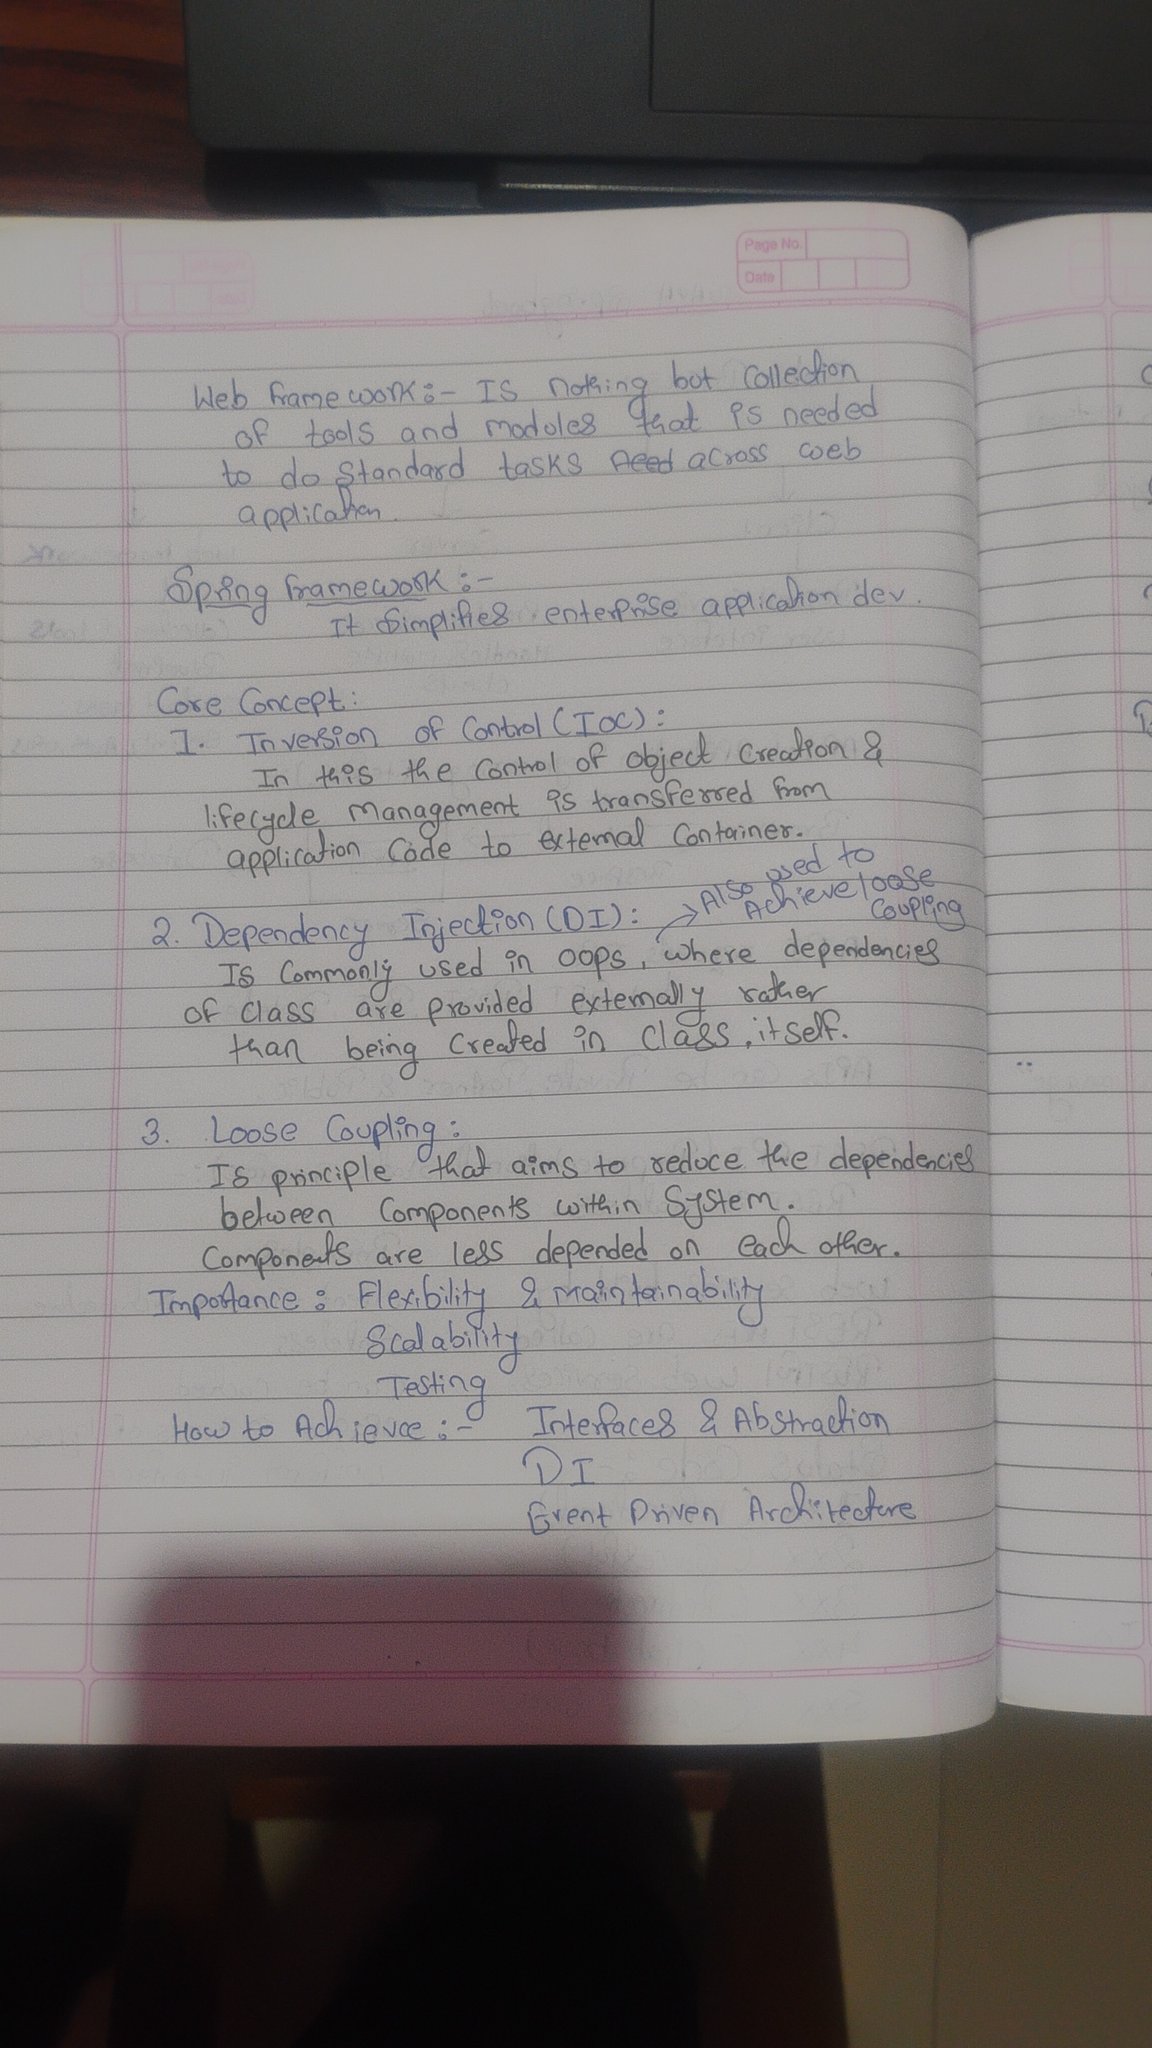 Page No.
Date
Web framework:- Is nothing but collection
of tools and modules that is needed
to do standard tasks need across web
application.
Spring framework :-
It Simplifies enterprise application dev.
Core Concept:
1. Inversion of Control (IOC):
In this the control of object creation &
lifecycle management is transferred from
application code to external container.
2. Dependency Injection (DI): → Also used to
Achieve loose
Coupling
Is Commonly used in OOPs, where dependencies
of class are provided externally rather
than being created in class, itself.
3. Loose Coupling:
Is principle that aims to reduce the dependencies
between Components within System.
Components are less depended on each other.
Importance: Flexibility & Maintainability
Scalability
Testing
How to Achieve:- Interfaces & Abstraction
DI
Event Driven Architecture